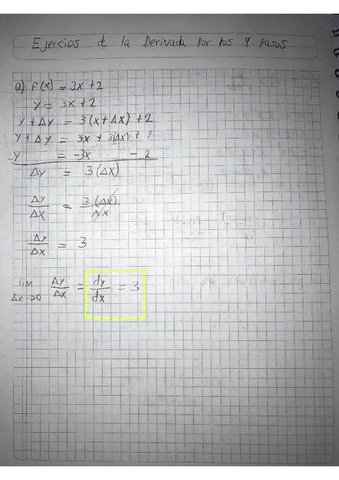 Ejercios de la Derivada por los 4 pasos
a) F(x) = 3x + 2
y = 3x + 2
y + Δy = 3(x + Δx) + 2
y + Δy = 3x + 3(Δx) +
y = -3x - 2
Δy = 3(Δx)
Δy/Δx = 3(Δx)/Δx
Δy/Δx = 3
lim Δx→0 Δy/Δx = dy/dx = 3